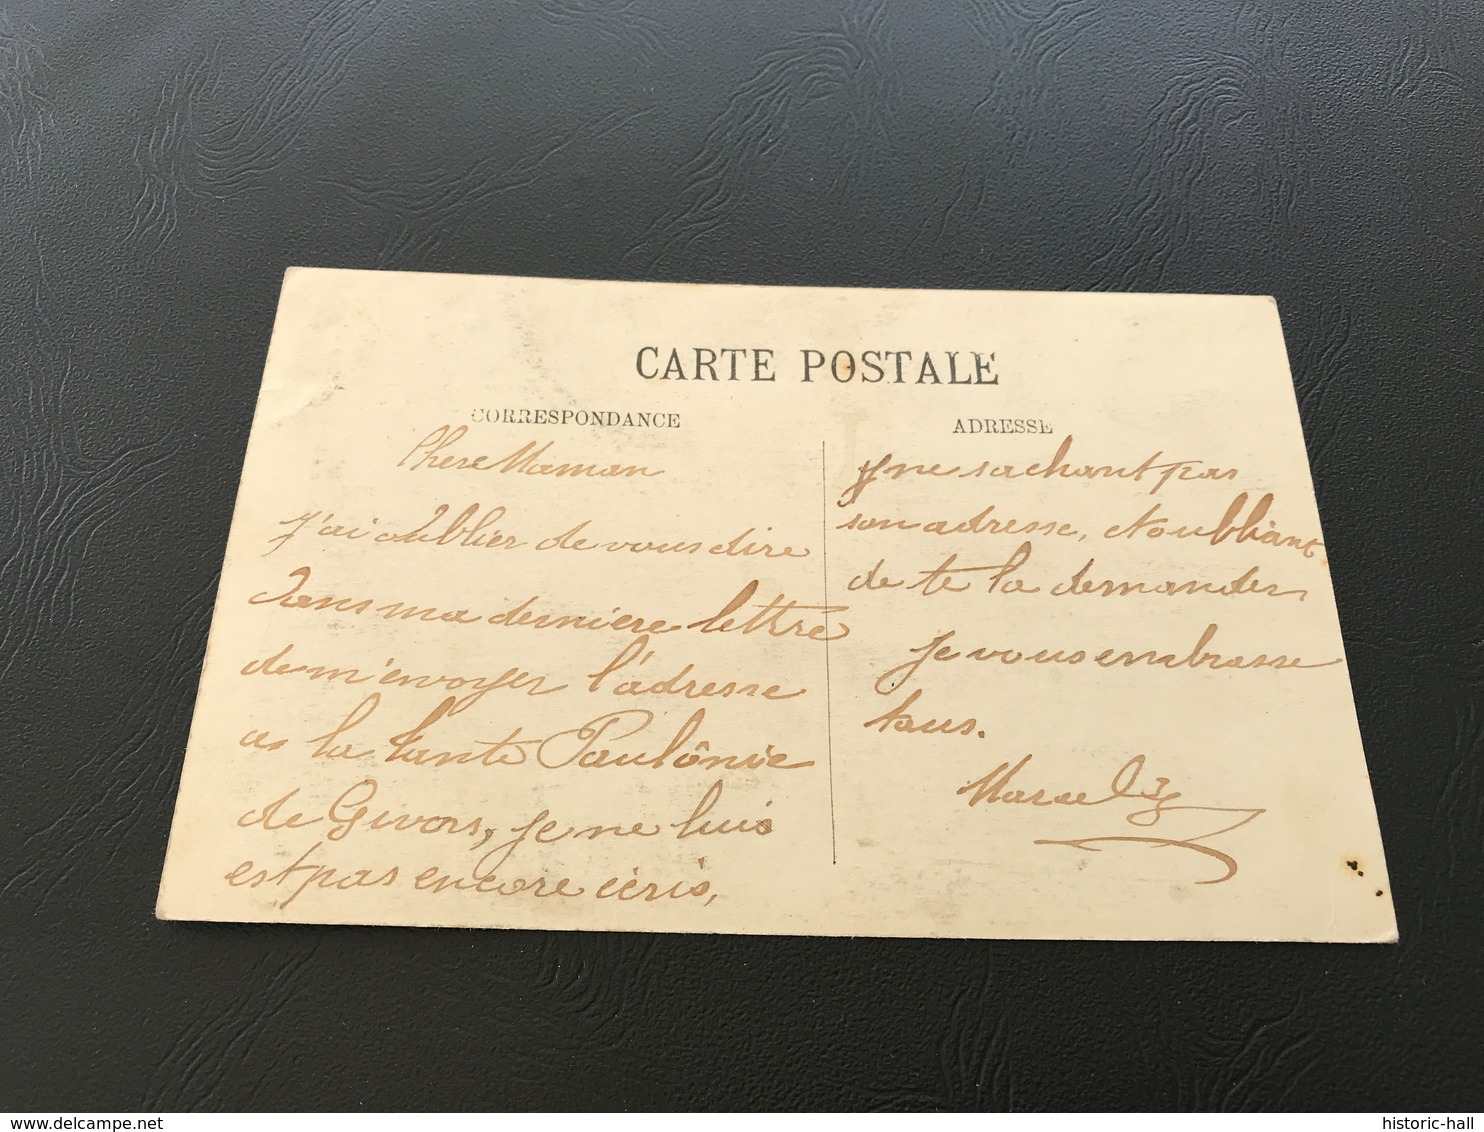 CARTE POSTALE
CORRESPONDANCE
Chere Maman
J'ai oublier de vous dire
dans ma derniere lettre
de m'envoyer l'adresse
as la tante Paulônie
de Givors, je ne luis
est pas encore écris,
ADRESSE
ne sachant pas
son adresse, et oubliant
de te la demander,
Je vous embrasse
tous.
Marcel
delcampe.net
historic-hall